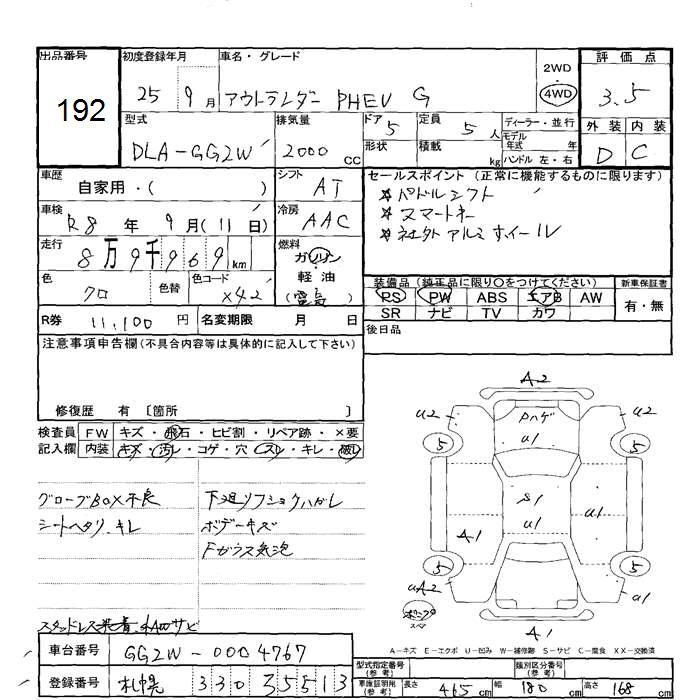 出品番号 初度登録年月 車名・グレード 2WD 評価点
192 25年 9月 アウトランダー PHEV G 4WD 3.5
型式 排気量 ドア 5 定員 5人 ディーラー・並行 外装 内装
DLA-GG2W 2000 CC 形状 積載 kg モデル年式 年 ハンドル 左・右 D C
車歴 自家用・( ) シフト AT セールスポイント (正常に機能するものに限ります)
車検 R8年 9月(11日) 冷房 AAC ☆パドルシフト
☆スマートキー
走行 8万9千969km 燃料 ガソリン・軽油(電気) ☆社外アルミホイール
色 クロ 色替 色コード X42
装備品 (純正品に限り○をつけてください) 新車保証書
PS PW ABS エアB AW 有・無
SR ナビ TV カワ
R券 11,100円 名変期限 月 日 後日品
注意事項申告欄(不具合内容等は具体的に記入して下さい)
修復歴 有 〔箇所 〕
検査員 FW キズ・飛石・ヒビ割・リペア跡・×要
記入欄 内装 キズ・汚レ・コゲ・穴・スレ・キレ・破レ
グローブBOX不良 下廻リフショクハガレ
シートヘタリ、キレ ボデーキズ
Fガラス気泡
スタッドレス装着
車台番号 GG2W-0004767
登録番号 札幌 330 35513
A2
U2 Pハゲ U2
5 U1 5
S1
A1 U1 U1
5 5
UA2 U1
スペア
A1
A-キズ E-エクボ U-凹み W-補修跡 S-サビ C-腐食 XX-交換済
型式指定番号(参考) 類別区分番号(参考)
車体証明用(参考) 長さ 465cm 幅 180cm 高さ 168cm